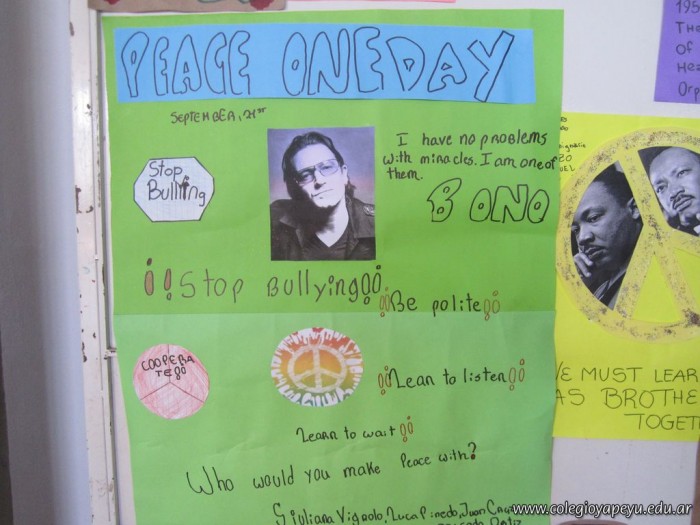 PEACE ONE DAY
SEPTEMBER, 21ST
Stop
Bullying
I have no problems
with miracles. I am one of
them.
BONO
¡¡Stop Bullying!!
¡¡Be polite!!
COOPERA
TE!!
¡¡Lean to listen!!
Learn to wait!!
Who would you make Peace with?
Giuliana Vignolo, Luca Pinedo, Juan
195
The
of
Hea
Orp
WE MUST LEAR
AS BROTHE
TOGET
www.colegioyapeyu.edu.ar